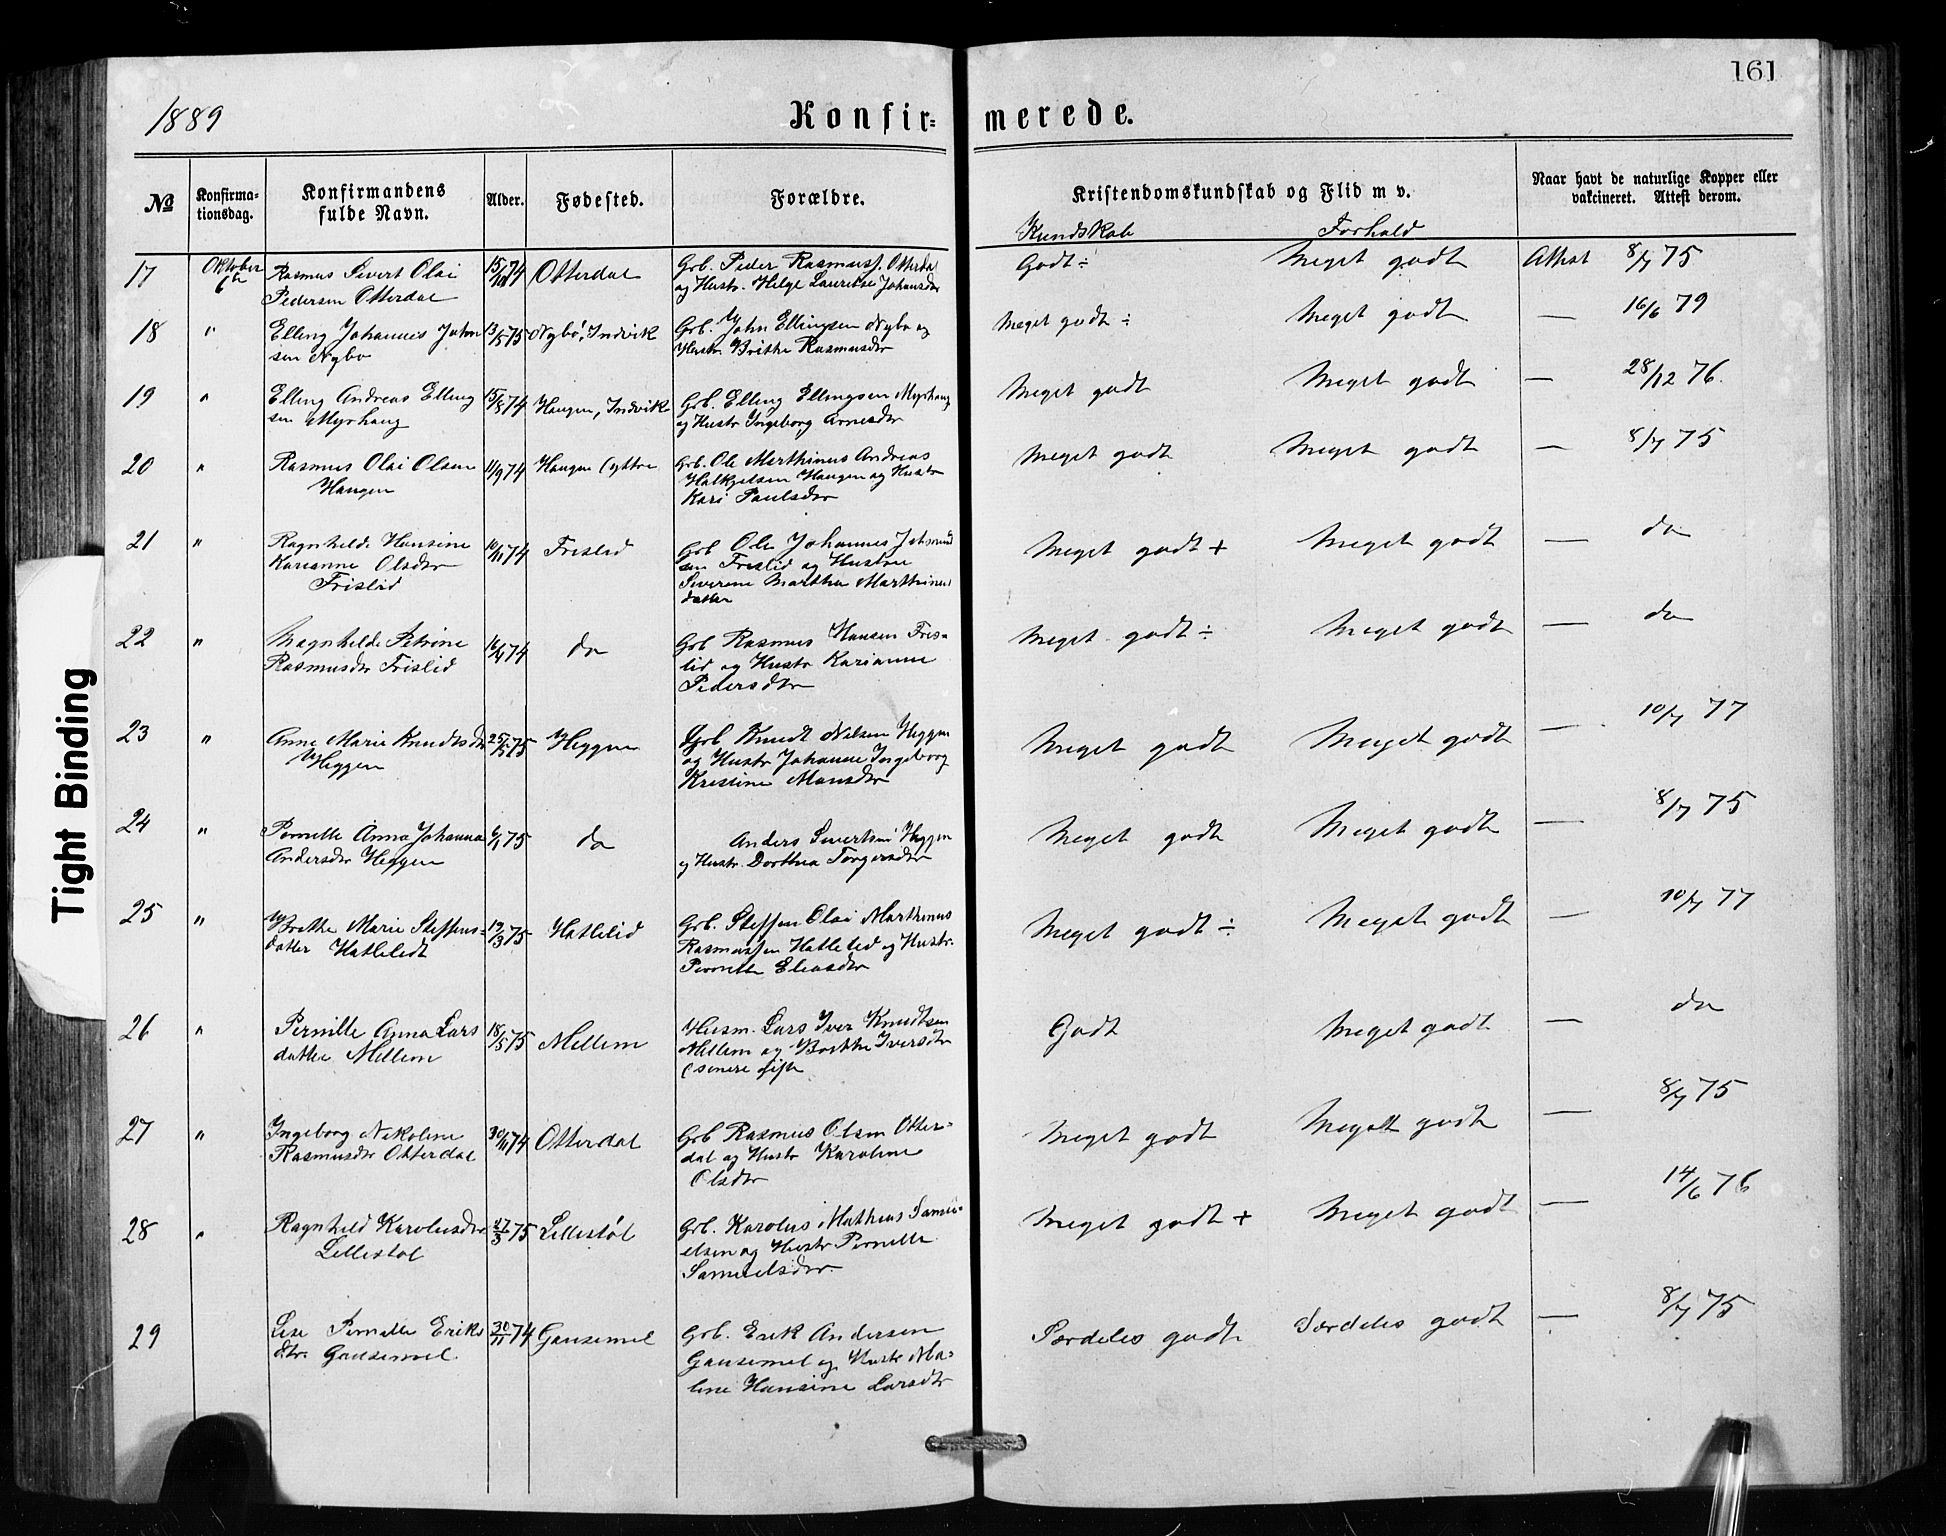 161
1889
Konfir=
merede.
№
Konfirma-
tionsdag.
Konfirmandens
fulde Navn.
Alder.
Fødested.
Forældre.
Kristendomskundskab og Flid m v.
Kundskab
Forhold
Naar havt de naturlige Kopper eller
vakcineret. Attest derom.
17 Oktober 6te Rasmus Sivert Olai 15/10 74 Otterdal Grb. Peder Rasmuss. Otterdal Godt ÷ Meget godt Attest 8/7 75
Pedersen Otterdal og Hustr. Helge Lauritse Johansdr
18 " Elling Johannes John 13/5 75 Nybø, Indvik Grb. John Ellingsen Nybø og Meget godt ÷ Meget godt — 16/6 79
sen Nybø Hustr. Brithe Rasmusdr
19 " Elling Andreas Elling 15/8 74 Haugen, Indvik Grb. Elling Ellingsen Myrhaug Meget godt Meget godt — 28/12 76.
sen Myrhaug og Hustr Ingeborg Arnesdr
20 " Rasmus Olai Olsen 11/9 74 Haugen (yttre Grb. Ole Marthinus Andreas Meget godt Meget godt — 8/7 75
Haugen Halkjelsen Haugen og Hustr
Kari Paulsdr
21 " Ragnhilde Hansine 10/11 74 Frislid Grb Ole Johannes Johannes Meget godt + Meget godt — do
Karianne Olsdr sen Frislid og Hustru
Frislid Siverine Marthea Marthinus
datter
22 " Magnhilde Petrine 16/9 74 do Grb Rasmus Hansen Fris= Meget godt ÷ Meget godt — do
Rasmusdr Frislid lid og Hustr Karianne
Pedersdtr
23 " Anne Marie Knudtsdr 25/5 75 Heggen Grb Knudt Nilsen Heggen Meget godt Meget godt — 10/7 77
Heggen og Hustr Johanne Ingeborg
Kristine Monsdr
24 " Pernille Anna Johanna 6/1 75 do Anders Sivertsen Heggen Meget godt Meget godt — 8/7 75
Andersdr Heggen og Hustr. Dorthea Torgersdtr
25 " Brithe Marie Steffens= 19/3 75 Hatlelid Grb. Steffen Olai Marthinus Meget godt ÷ Meget godt — 10/7 77
datter Hatlelidt Rasmussen Hatlelid og Hustr.
Pernille Eliasdtr
26 " Pernille Anna Lars 18/5 75 Mellem Husm. Lars Iver Knudtsen Godt Meget godt — do
datter Mellem Mellem og Birthe Iversdtr
(senere gift
27 " Ingeborg Nikoline 30/11 74 Otterdal Grb Rasmus Olsen Otter= Meget godt Meget godt — 8/7 75
Rasmusdr Otterdal dal og Hustr Karoline
Olsdtr
28 " Ragnhild Karolusdr 27/3 75 Lillestøl Grb. Karolus Mathias Samu= Meget godt + Meget godt — 14/6 76
Lillestøl elsen og Hustr Pernille
Samuelsdtr.
29 Lise Pernille Eriks 30/11 74 Gausemel Grb. Erik Andersen Særdeles godt Særdeles godt — 8/7 75
dtr. Gausemel Gausemel og Hustr Ma=
line Hansine Larsdtr
Tight Binding